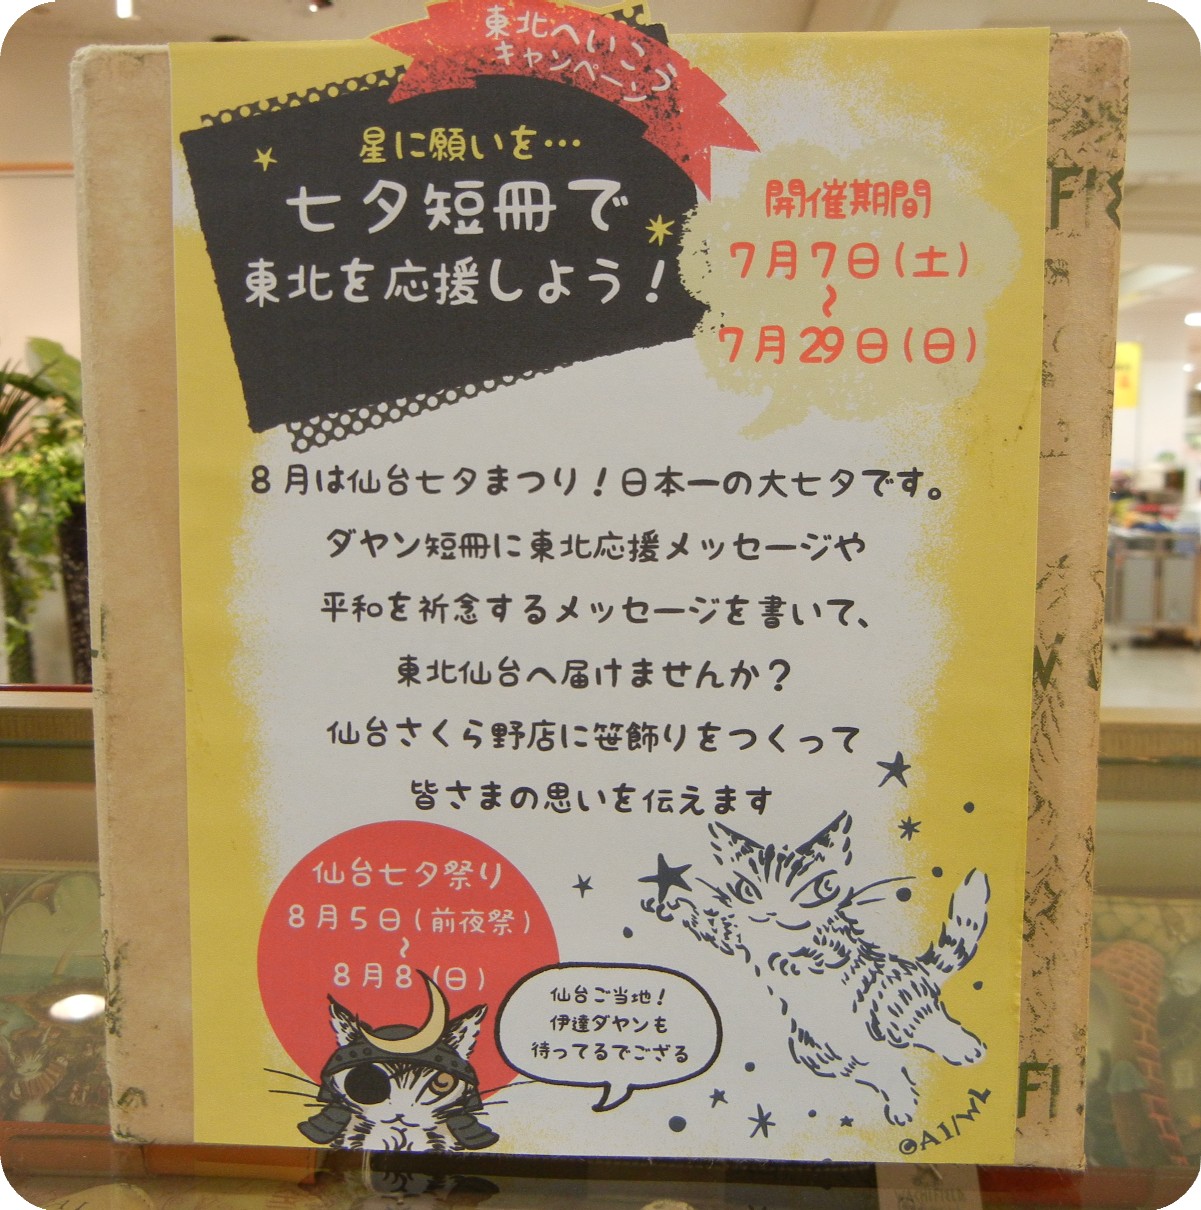 東北へいこう
キャンペーン
星に願いを…
七夕短冊で
東北を応援しよう!
開催期間
7月7日(土)
~
7月29日(日)
8月は仙台七夕まつり!日本一の大七夕です。
ダヤン短冊に東北応援メッセージや
平和を祈念するメッセージを書いて、
東北仙台へ届けませんか?
仙台さくら野店に笹飾りをつくって
皆さまの思いを伝えます
仙台七夕祭り
8月5日(前夜祭)
~
8月8(日)
仙台ご当地!
伊達ダヤンも
待ってるでござる
©AI/WL
WACHIFIELD